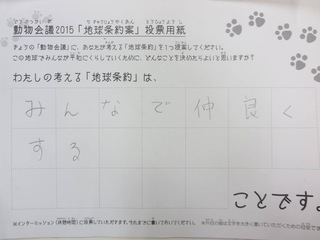 動物会議2015「地球条約案」投票用紙
きょうの「動物会議」に、あなたが考える「地球条約」を1つ提案してください。
この地球でみんなが平和にくらしていくために、どんなことを決めたらよいと思いますか？
わたしの考える「地球条約」は、
みんなで仲良く
する
ことです。
※インターミッション（休憩時間）に投票していただきます。それまでに書いておいてください。